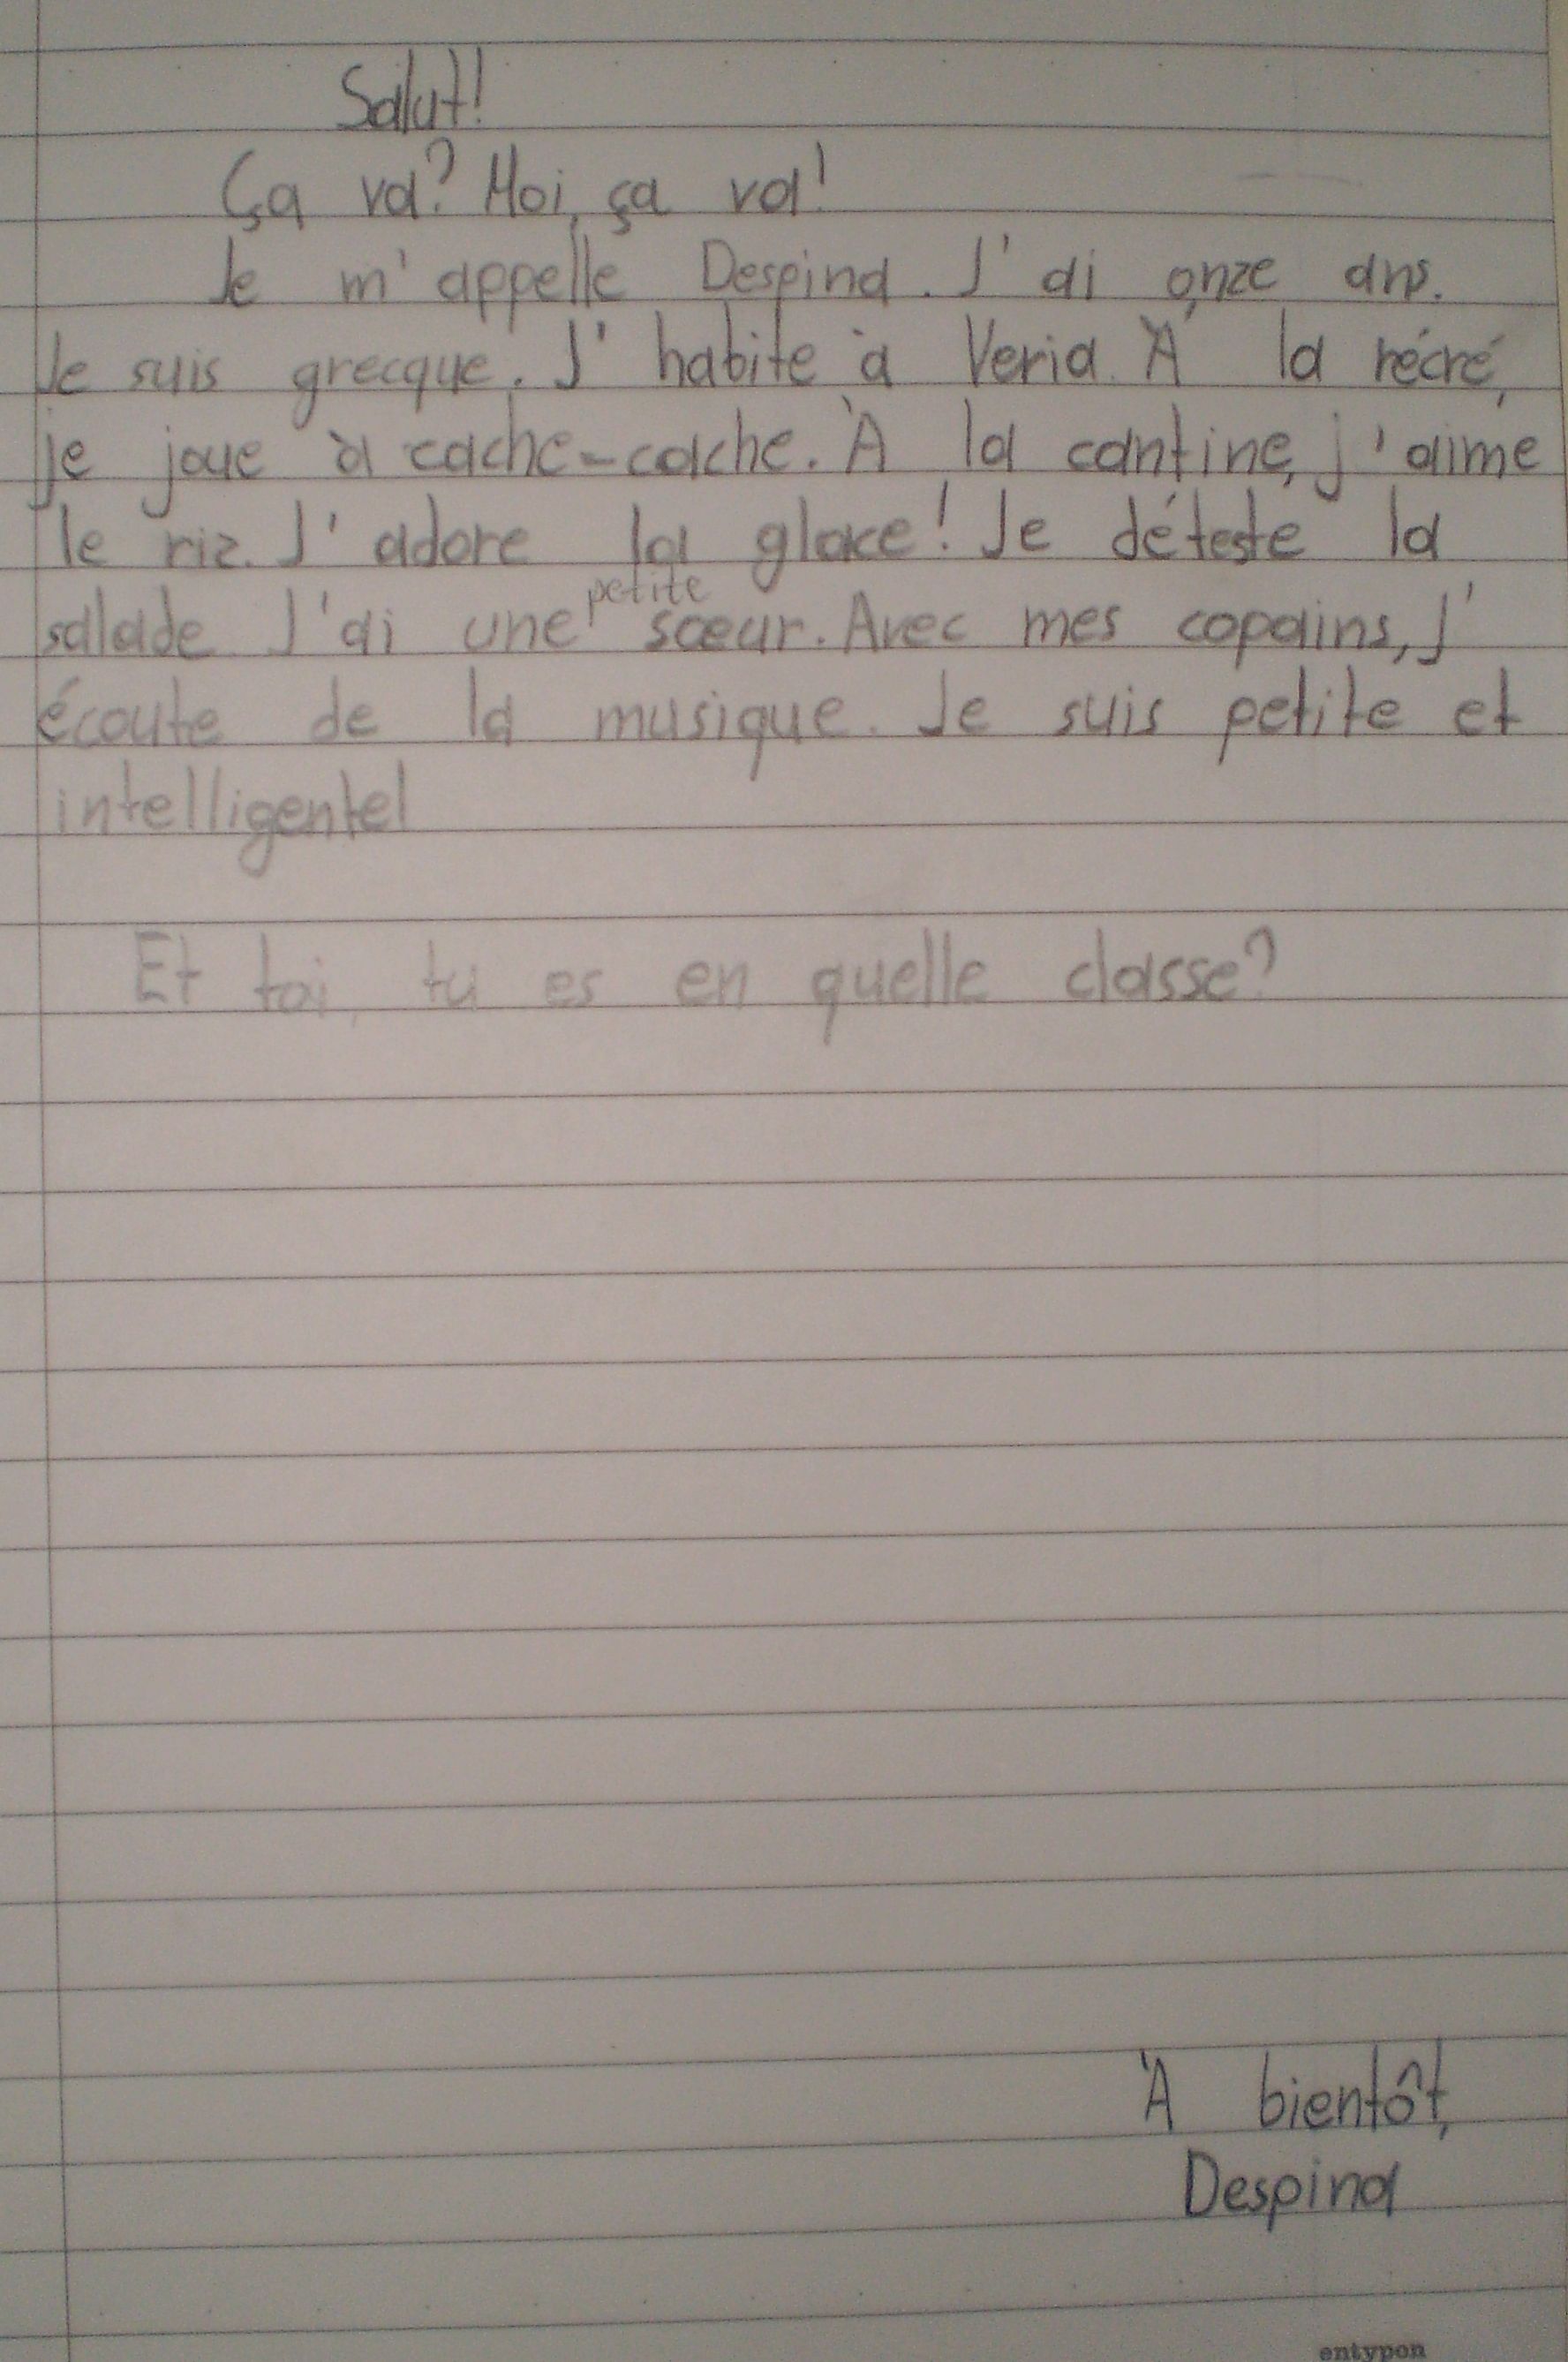 Salut!
Ça va? Moi, ça va!
Je m'appelle Despina. J'ai onze ans.
Je suis grecque. J'habite à Veria. À la récré,
je joue à cache-cache. À la cantine, j'aime
le riz. J'adore la glace! Je déteste la
salade. J'ai une petite sœur. Avec mes copains, j'
écoute de la musique. Je suis petite et
intelligente!
Et toi, tu es en quelle classe?
À bientôt,
Despina
entypon